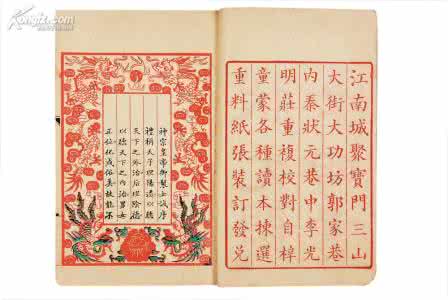 江南城聚寶門三山
大街大功坊郭家巷
内秦狀元巷中李光
明莊重複校對自梓
童蒙各種讀本揀選
重料紙張裝訂發兌
神宗皇帝御製女誡序
禮稱天子理陽道以德
天下之外治后理陰德
以聽天下之内治男女
正位
孔夫子旧书网
KONGFZ.COM